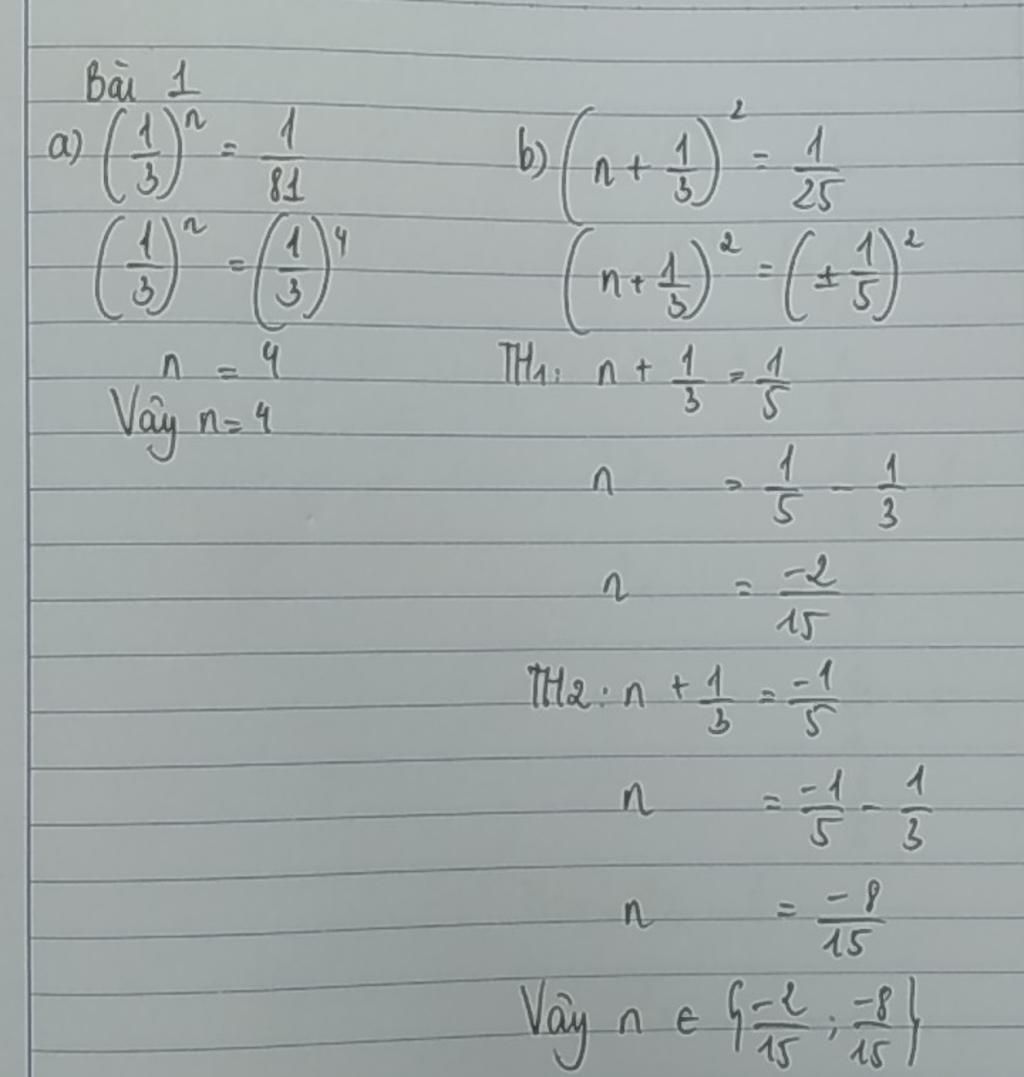 Bài 1
a) (1/3)^n = 1/81
(1/3)^n = (1/3)^4
n = 4
Vậy n = 4
b) (n + 1/3)^2 = 1/25
(n + 1/3)^2 = (± 1/5)^2
TH1: n + 1/3 = 1/5
n = 1/5 - 1/3
n = -2/15
TH2: n + 1/3 = -1/5
n = -1/5 - 1/3
n = -8/15
Vậy n ∈ {-2/15 ; -8/15}